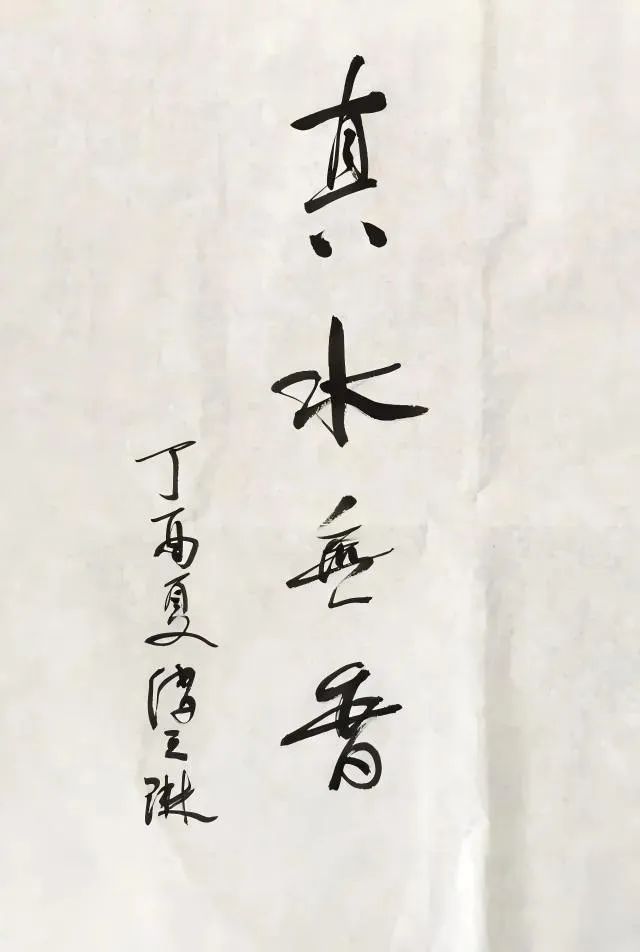 真水無香
丁酉夏